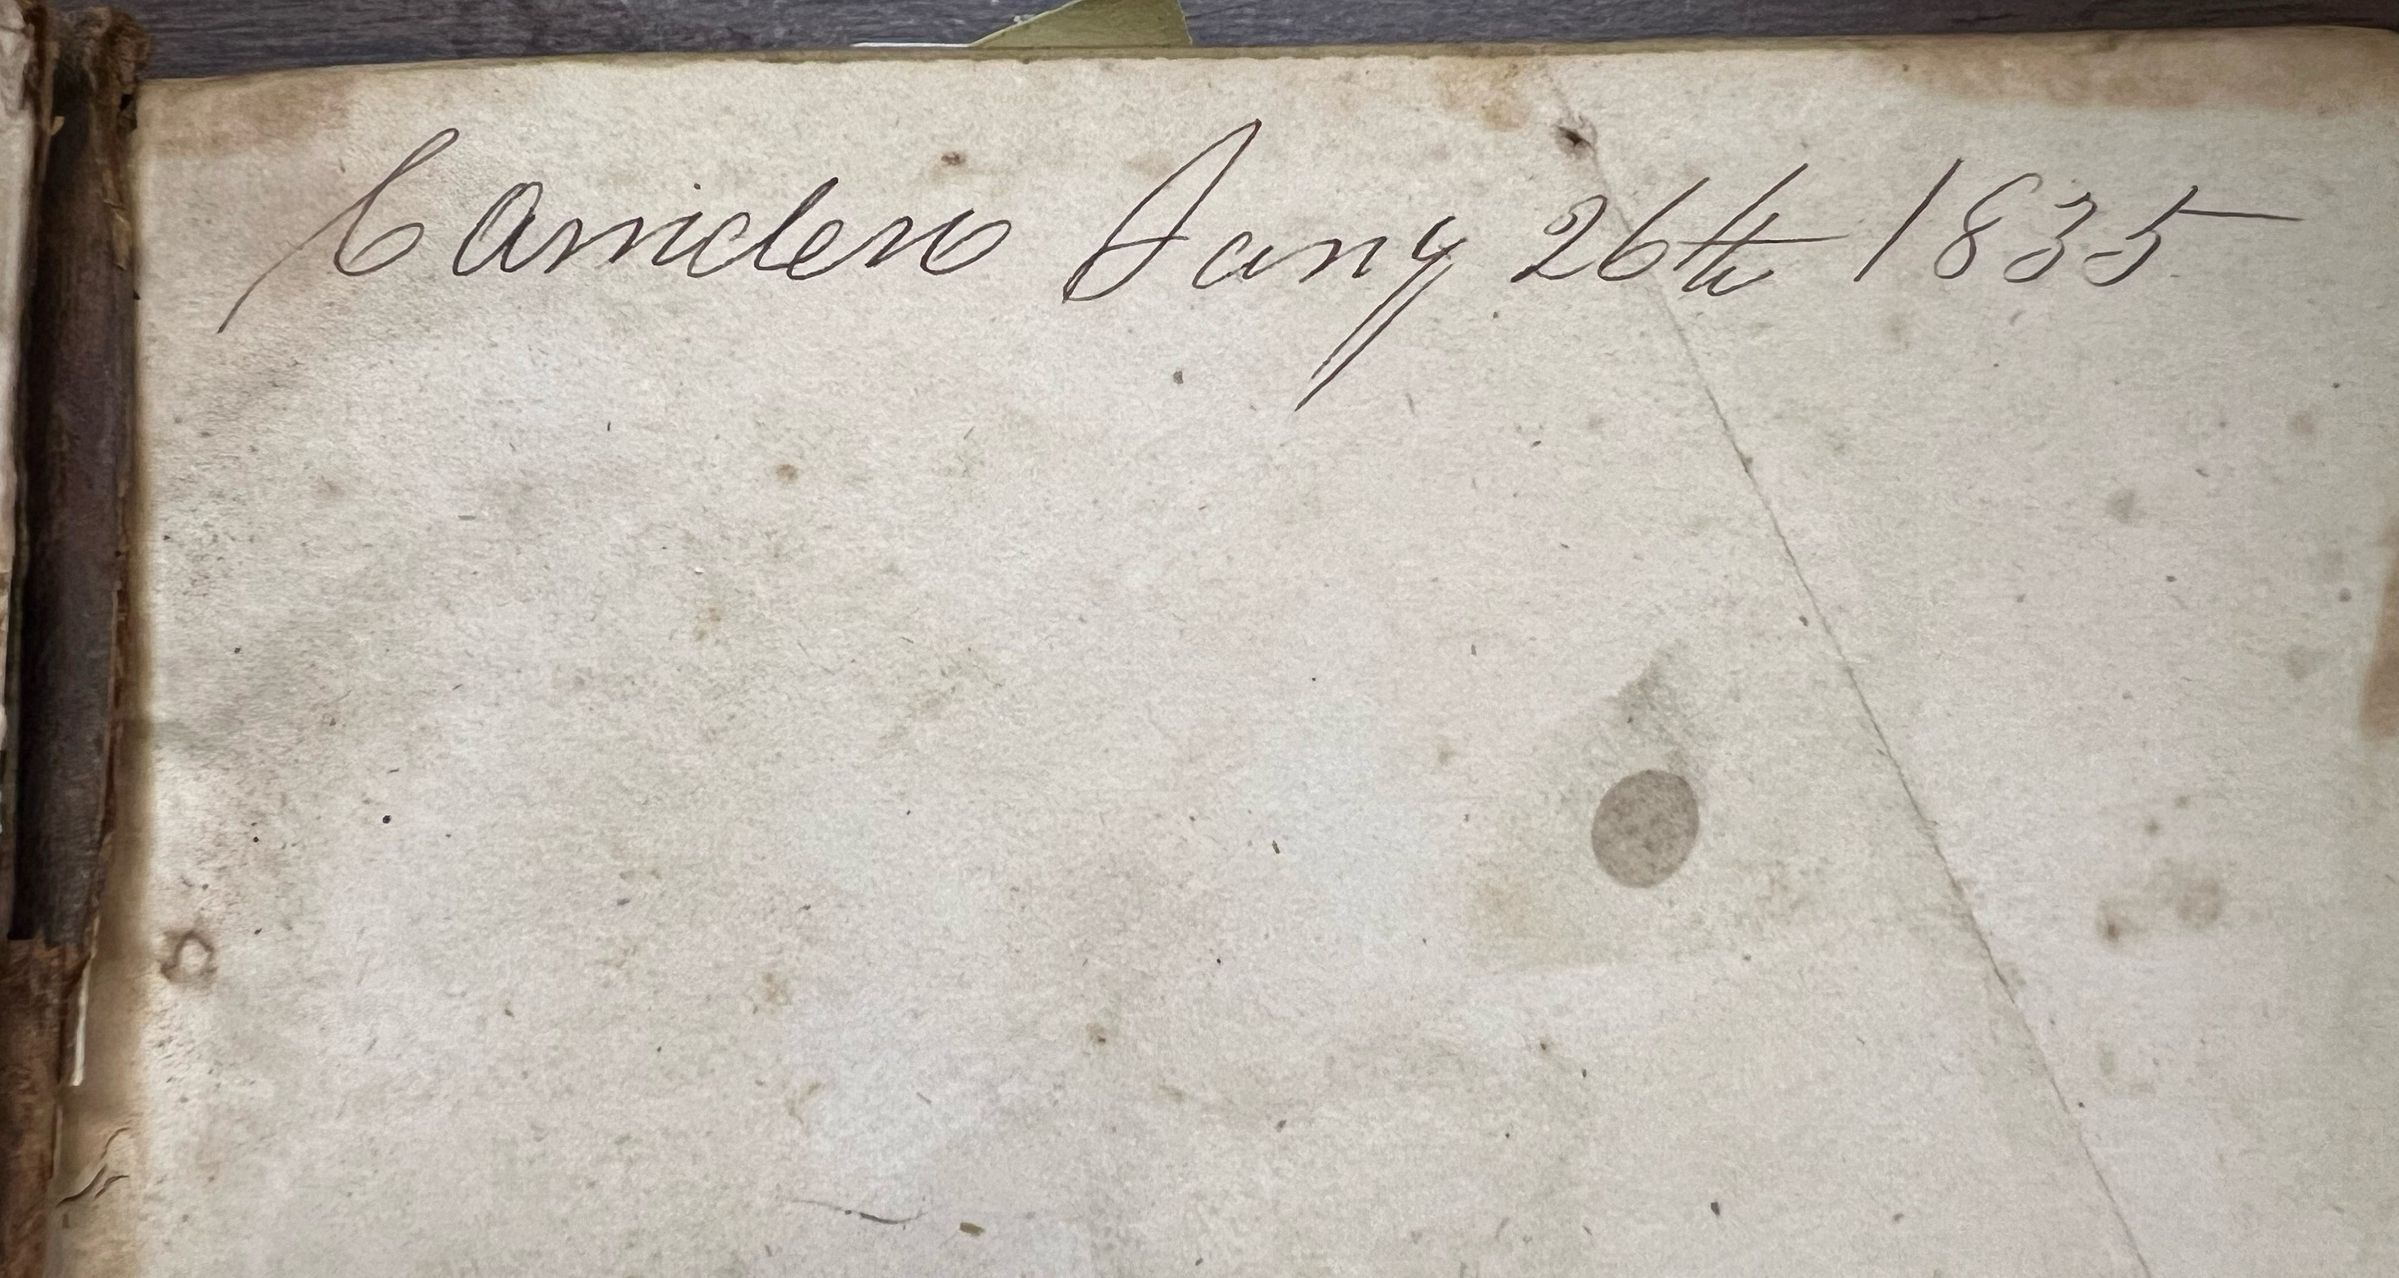 Camden Jany 26th 1835